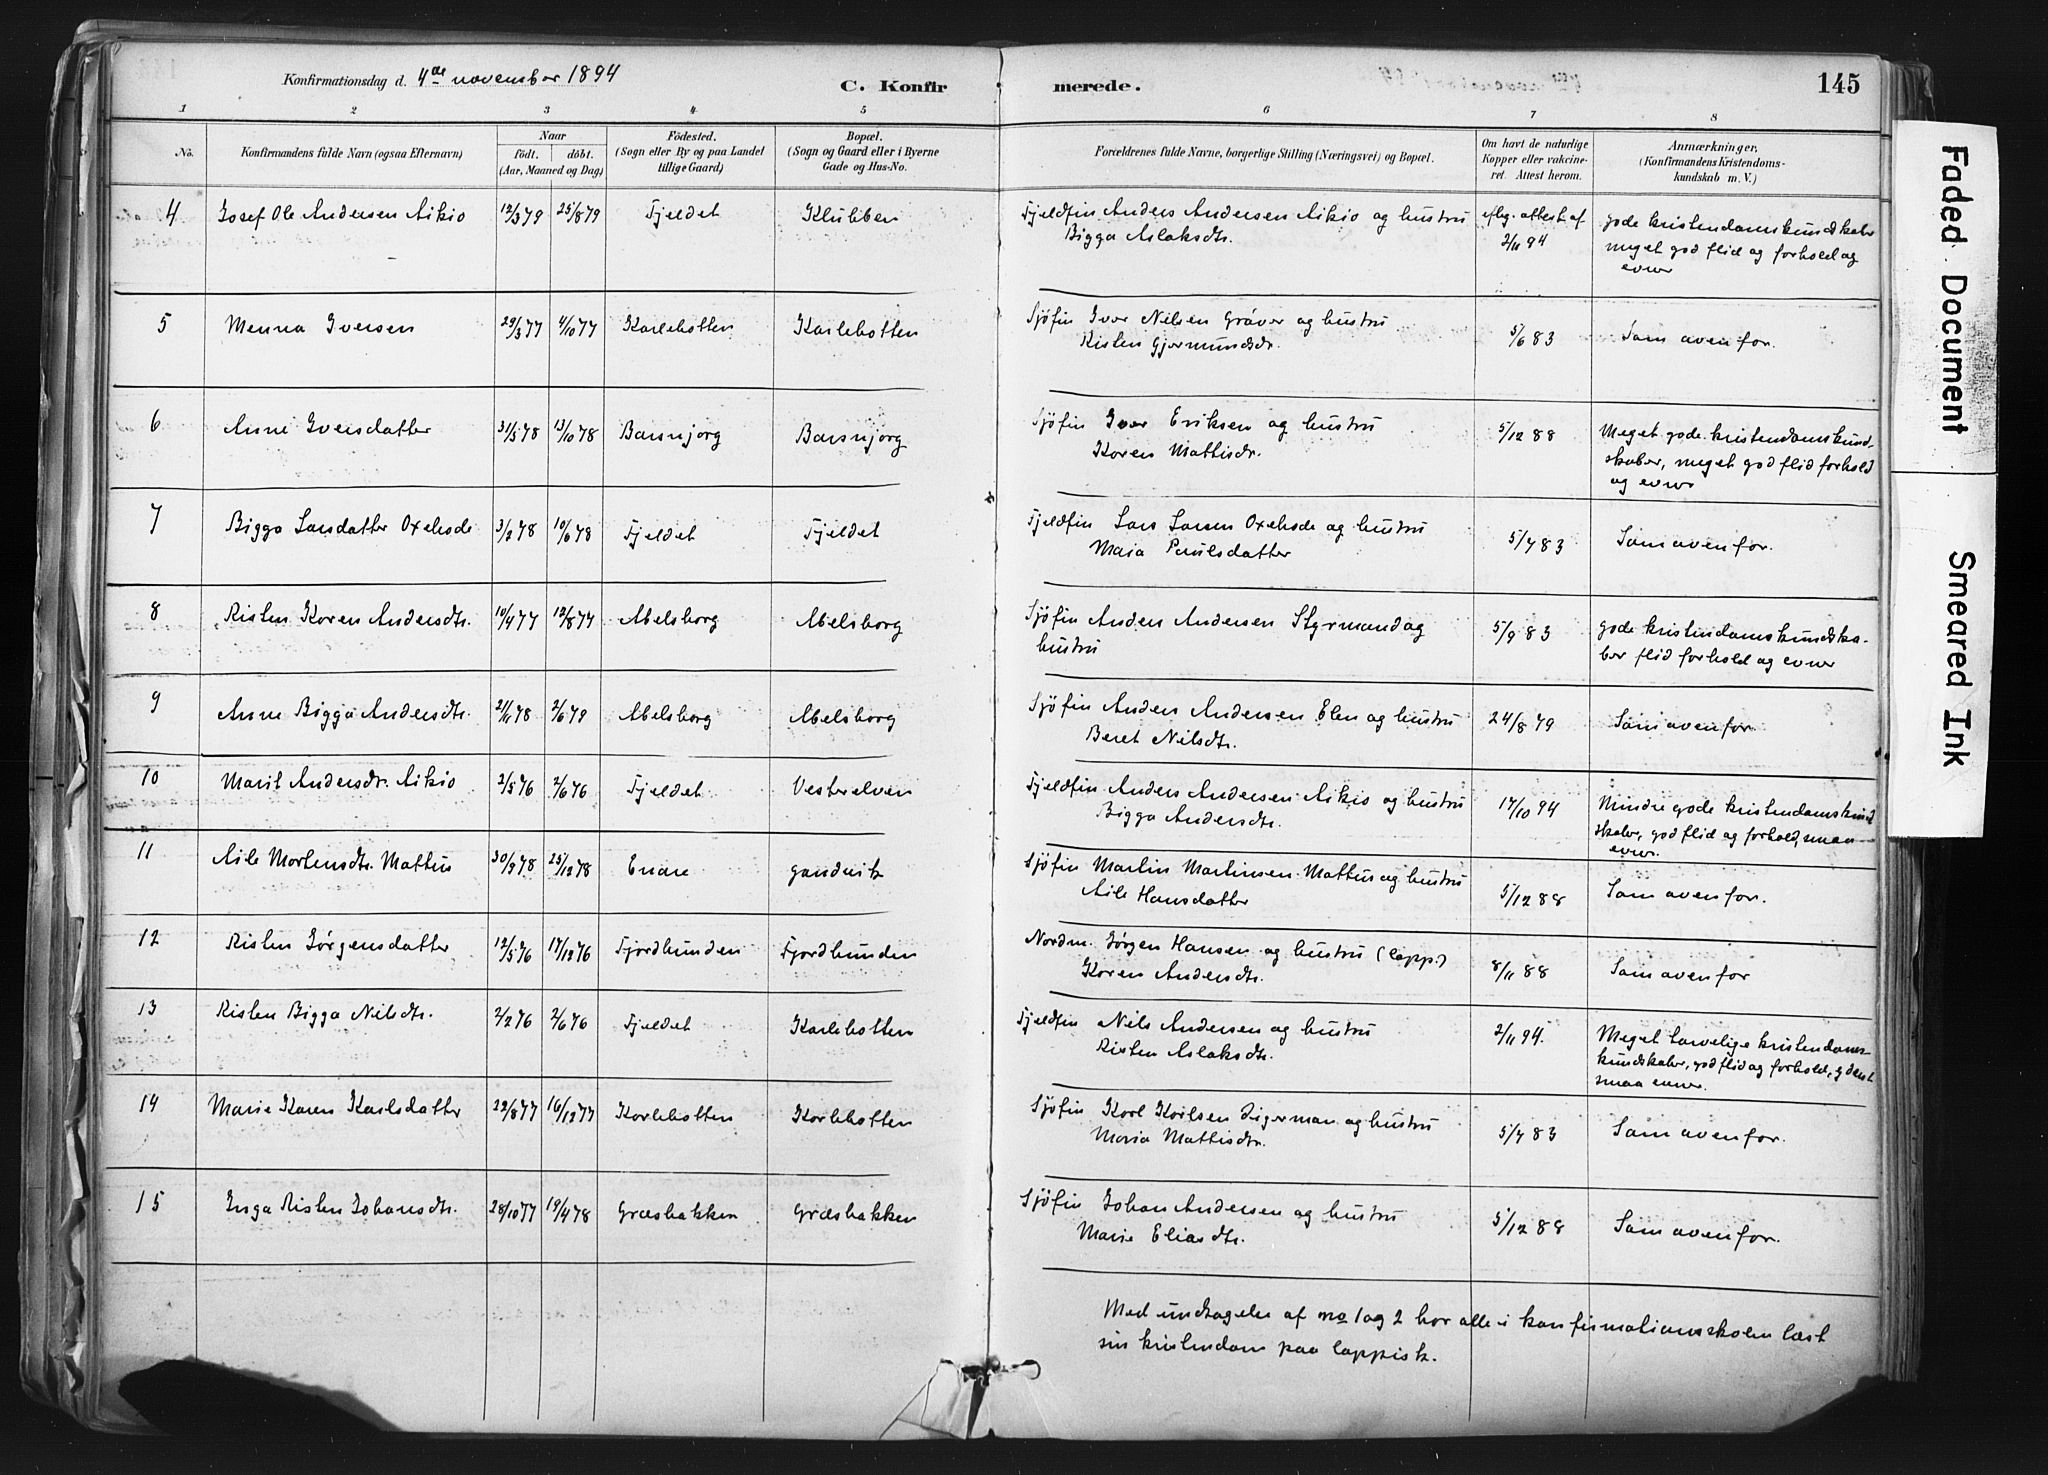 Konfirmationsdag d. 4de november 1894
C. Konfirmerede.
145
1 2 3 4 5 6 7 8
No.
Konfirmandens fulde Navn (ogsaa Efternavn)
Naar
födt. döbt.
(Aar, Maaned og Dag)
Födested.
(Sogn eller By og paa Landet
tillige Gaard)
Bopæl.
(Sogn og Gaard eller i Byerne
Gade og Hus-No.
Forældrenes fulde Navne, borgerlige Stilling (Næringsvei) og Bopæl.
Om havt de naturlige
Kopper eller vakcine-
ret. Attest herom.
Anmærkninger.
(Konfirmandens Kristendoms-
kundskab m. V.)
4 Josef Ole Andersen Aikio 12/3 79 25/8 79 Fjeldet Klubben Fjeldfin Anders Andersen Aikio og hustru
Bigga Aslaksdtr.
aflag. attest af
2/11 94
gode kristendomskundskaber
meget god flid og forhold og
evner
5 Menna Iversen 29/3 77 4/10 77 Karlebotten Karlebotten Sjøfin Iver Nilsen Gråver og hustru
Risten Gjermundsdr.
5/6 83 Som ovenfor.
6 Anne Iversdatter 31/3 78 13/10 78 Barsnjorg Barsnjorg Sjøfin Iver Eriksen og hustru
Karen Mattisdr.
5/12 88 Meget gode kristendomskund-
skaber, meget god flid forhold
og evner
7 Bigga Larsdatter Oxehode 3/2 78 10/6 78 Fjeldet Fjeldet Fjeldfin Lars Larsen Oxehode og hustru
Maia Paulsdatter
5/7 83 Som ovenfor.
8 Risten Karen Andersdtr. 10/4 77 12/8 77 Abelsborg Abelsborg Sjøfin Anders Andersen Styrmand og
hustru
5/9 83 gode kristendomskundska-
ber flid forhold og evner
9 Anne Bigga Andersdtr. 21/11 78 2/6 79 Abelsborg Abelsborg Sjøfin Anders Andersen Elen og hustru
Beret Nilsdtr.
24/8 79 Som ovenfor
10 Marit Andersdr. Aikio 2/5 76 2/6 76 Fjeldet Vesterelven Fjeldfin Anders Andersen Aikio og hustru
Bigga Andersdtr.
17/10 94 Mindre gode kristendomskund
skaber, god flid og forhold, smaa
evner.
11 Aile Mortensdtr. Mattus 30/9 78 25/12 78 Enare gandvik Sjøfin Martin Martinsen Mattus og hustru
Aile Hansdatter
5/12 88 Som ovenfor.
12 Risten Jørgensdatter 12/5 76 17/12 76 Fjordbunden Fjordbunden Nordm. Jørgen Hansen og hustru (lapp.)
Karen Andersdtr.
8/11 88 Som ovenfor
13 Risten Bigga Nilsdtr. 2/2 76 2/6 76 Fjeldet Karlebotten Fjeldfin Nils Andersen og hustru
Risten Aslaksdtr.
2/11 94. Meget tarvelige kristendoms-
kundskaber, god flid og forhold,
smaa evner.
14 Marie Karen Karlsdatter 22/8 77 16/12 77 Karlebotten Karlebotten Sjøfin Karl Karlsen Digerman og hustru
Maria Mattisdtr.
5/7 83 Som ovenfor.
15 Inga Risten Johansdtr. 28/10 77 19/4 78 Græsbakken Græsbakken Sjøfin Johan Andersen og hustru
Marie Eliasdtr.
5/12 88 Som ovenfor.
Med undtagelse af no 1 og 2 har alle i konfirmationsskolen læst
sin kristendom paa lappisk.
Faded Document
Smeared Ink